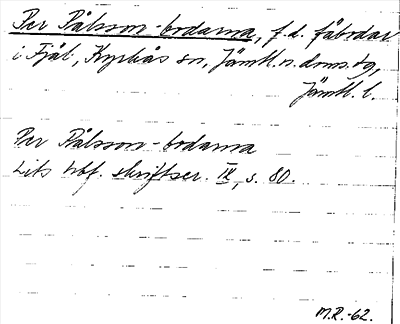 Per Pålsson-bodarna, f.d. fäbodar
i Fjäl, Kyrkås sn, Jämtl. n. doms.dg,
Jämtl. l.
Per Pålsson-bodarna
Lits hbf. skriftser. IX, s. 80.
M.R.-62.